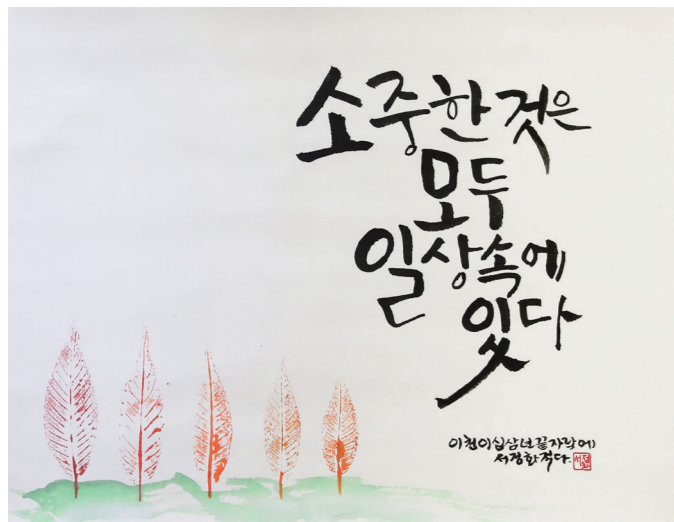 소중한 것은
모두
일상속에
있다
이천이십삼년 끝자락에
서정화 적다.